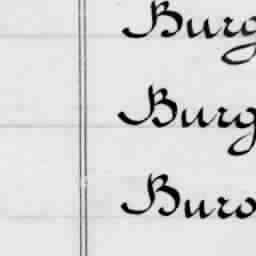 Burg
Burg
Buro